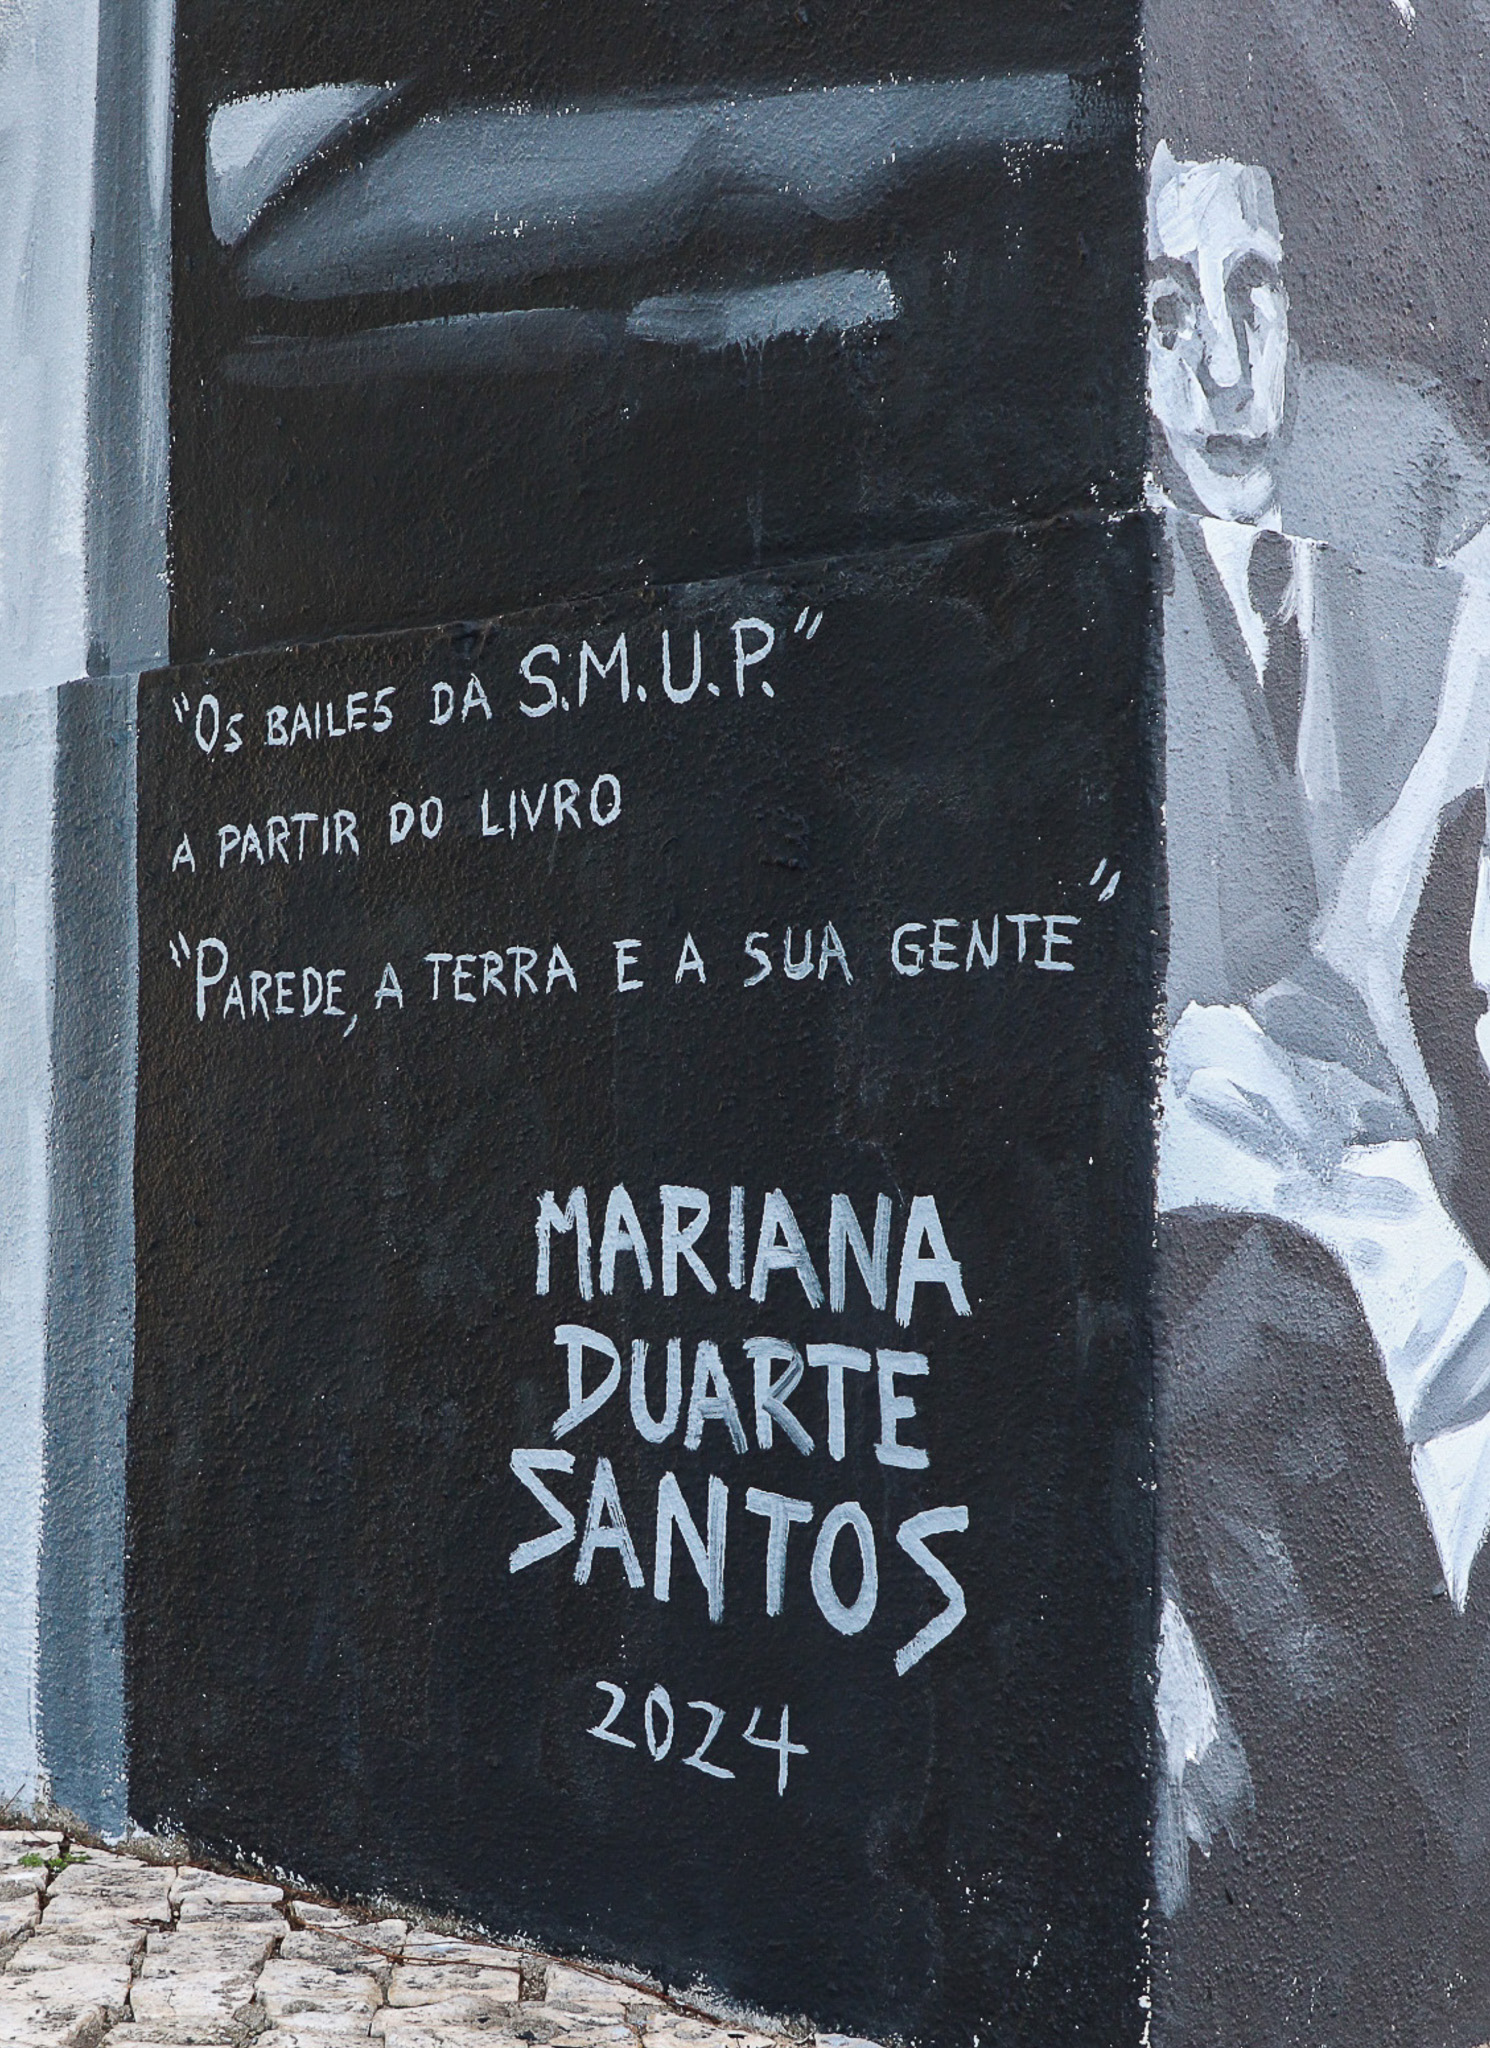 "Os BAILES DA S.M.U.P."
A PARTIR DO LIVRO
"PAREDE, A TERRA E A SUA GENTE"
MARIANA
DUARTE
SANTOS
2024